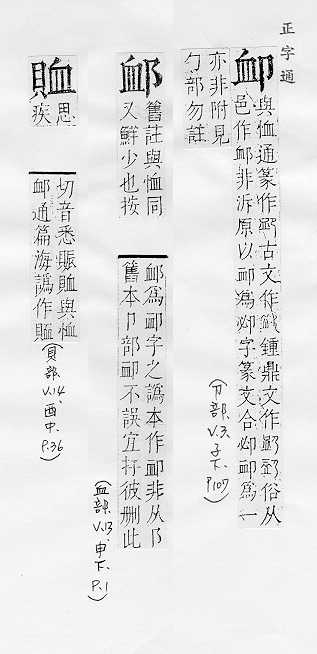 正字通
卹
與恤通篆作卹古文作𧗕鍾鼎文作
邑作䘏非泝原以卹為卹字篆文合卹卹為一
亦非附見
勹部勿註
(卩部.V.3.子下.P107)
䘏
舊註與恤同
又鮮少也按
䘏為卹字之譌本作卹非从阝
舊本卩部卹不誤宜幷彼刪此
(血部.V.13.申下.P.1)
賉
思
疾
切音悉賑賉與恤
卹通篇海譌作賉
(貝部.V.14.酉中.P.36)